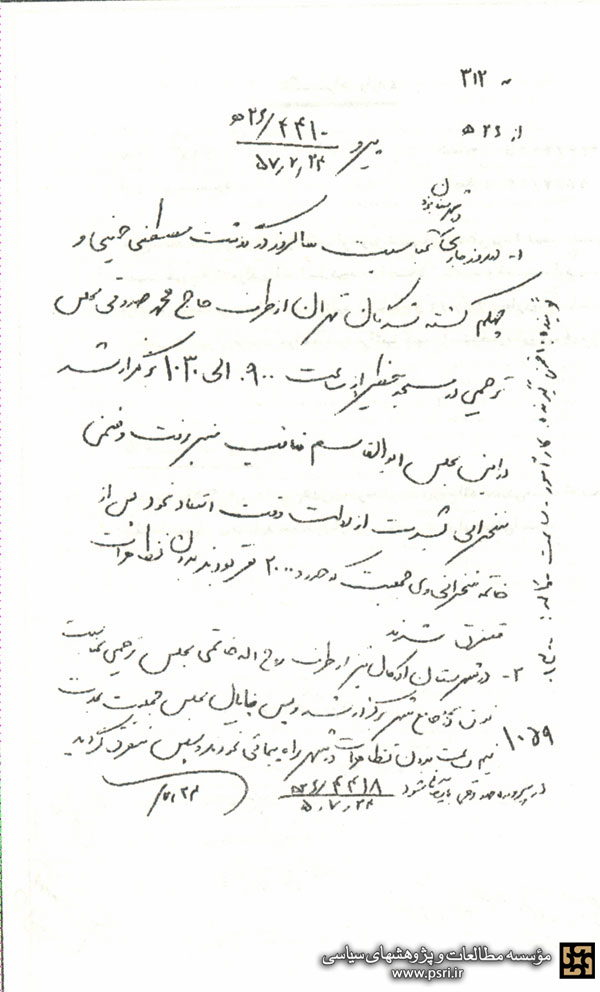 به ۳۱۲
از ۲۶ ه
پیرو ۴۴۱۰/۲۶ ه
۵۷٫۷٫۲۴
در شهرستان یزد
۱- امروز جاری بمناسبت سالروز درگذشت مصطفی خمینی و
چهلم کشته شدگان تهران از طرف حاج محمد صدوقی مجلس
ترحیمی در مسجد حظیره از ساعت ۰۹۰۰ الی ۱۰۳۰ برگزار شد
در این مجلس ابوالقاسم منبر رفت و ضمن
سخنرانی بشدت از دولت وقت انتقاد نمود پس از
خاتمه سخنرانی وی جمعیت که حدود ۲۰۰۰ نفر بودند بدون تظاهرات
متفرق شدند
۲- در شهرستان اردکان نیز از طرف روح اله خاتمی مجلس ترحیمی بمناسبت
فوق در جامع شهر برگزار شد و پس از پایان مجلس جمعیت بمدت
نیم ساعت بدون تظاهرات در شهر راه پیمائی نمودند و سپس متفرق گردیدند
در پرونده صدوقی بایگانی شود
۴۴۱۸/۲۶ ه
۵۷٫۷٫۲۴
۷٫۲۴
۱۰۵۹
مؤسسه مطالعات و پژوهشهای سیاسی
www.psri.ir